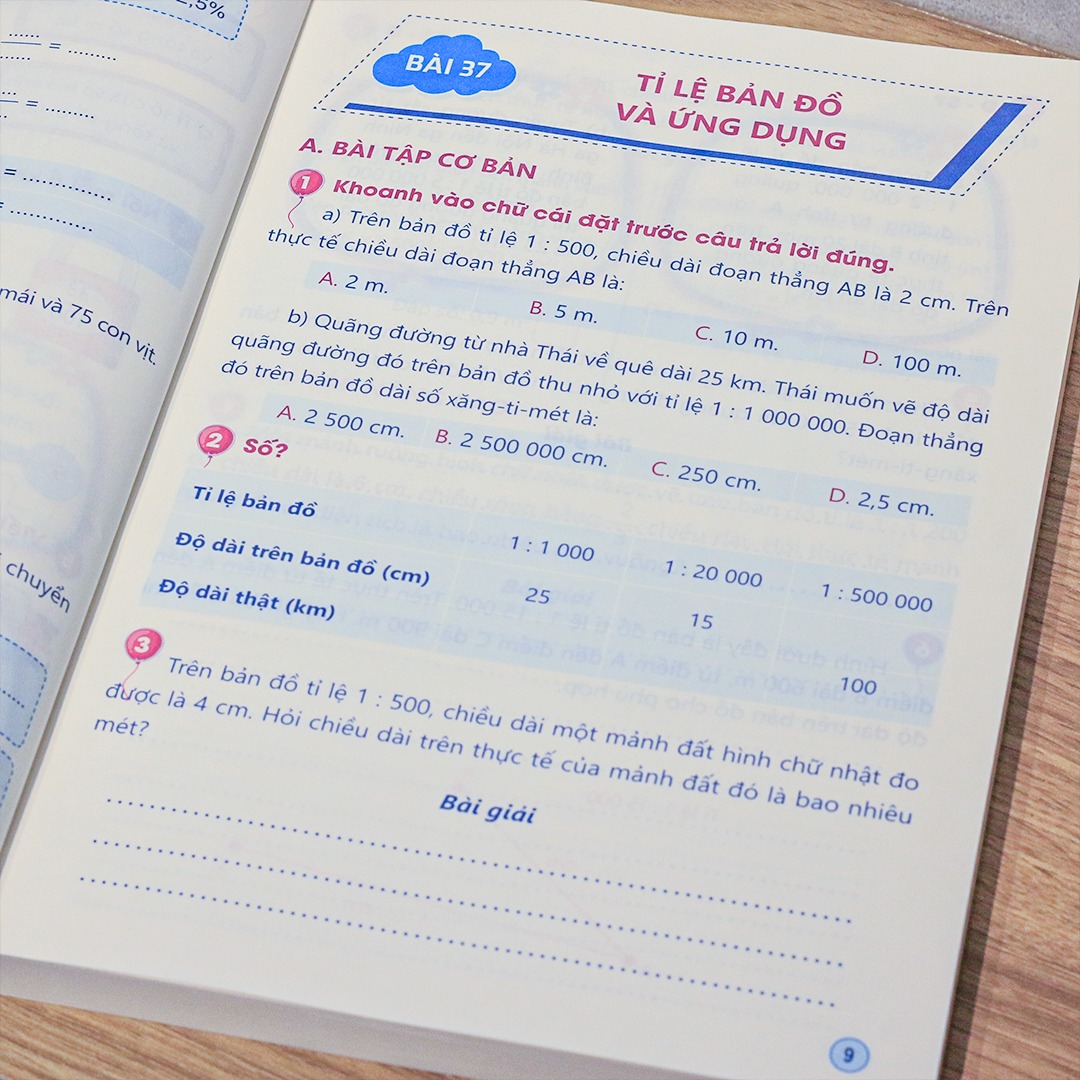 2,5%
...... = .........
= .........
= ..............
= ..............
mái và 75 con vịt.
chuyển
BÀI 37
TỈ LỆ BẢN ĐỒ
VÀ ỨNG DỤNG
A. BÀI TẬP CƠ BẢN
1 Khoanh vào chữ cái đặt trước câu trả lời đúng.
a) Trên bản đồ tỉ lệ 1 : 500, chiều dài đoạn thẳng AB là 2 cm. Trên
thực tế chiều dài đoạn thẳng AB là:
A. 2 m. B. 5 m. C. 10 m. D. 100 m.
b) Quãng đường từ nhà Thái về quê dài 25 km. Thái muốn vẽ độ dài
quãng đường đó trên bản đồ thu nhỏ với tỉ lệ 1 : 1 000 000. Đoạn thẳng
đó trên bản đồ dài số xăng-ti-mét là:
A. 2 500 cm. B. 2 500 000 cm. C. 250 cm. D. 2,5 cm.
2 Số?
Tỉ lệ bản đồ 1 : 1 000 1 : 20 000 1 : 500 000
Độ dài trên bản đồ (cm) 25 15
Độ dài thật (km) 100
3 Trên bản đồ tỉ lệ 1 : 500, chiều dài một mảnh đất hình chữ nhật đo
được là 4 cm. Hỏi chiều dài trên thực tế của mảnh đất đó là bao nhiêu
mét?
Bài giải
9